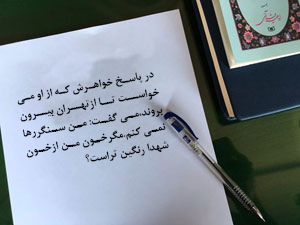 در پاسخ خواهرش که از او می
خواست تا ازتهران بیرون
بروند،می گفت: من سنگررها
نمی کنم،مگرخون من ازخون
شهدا رنگین تراست؟